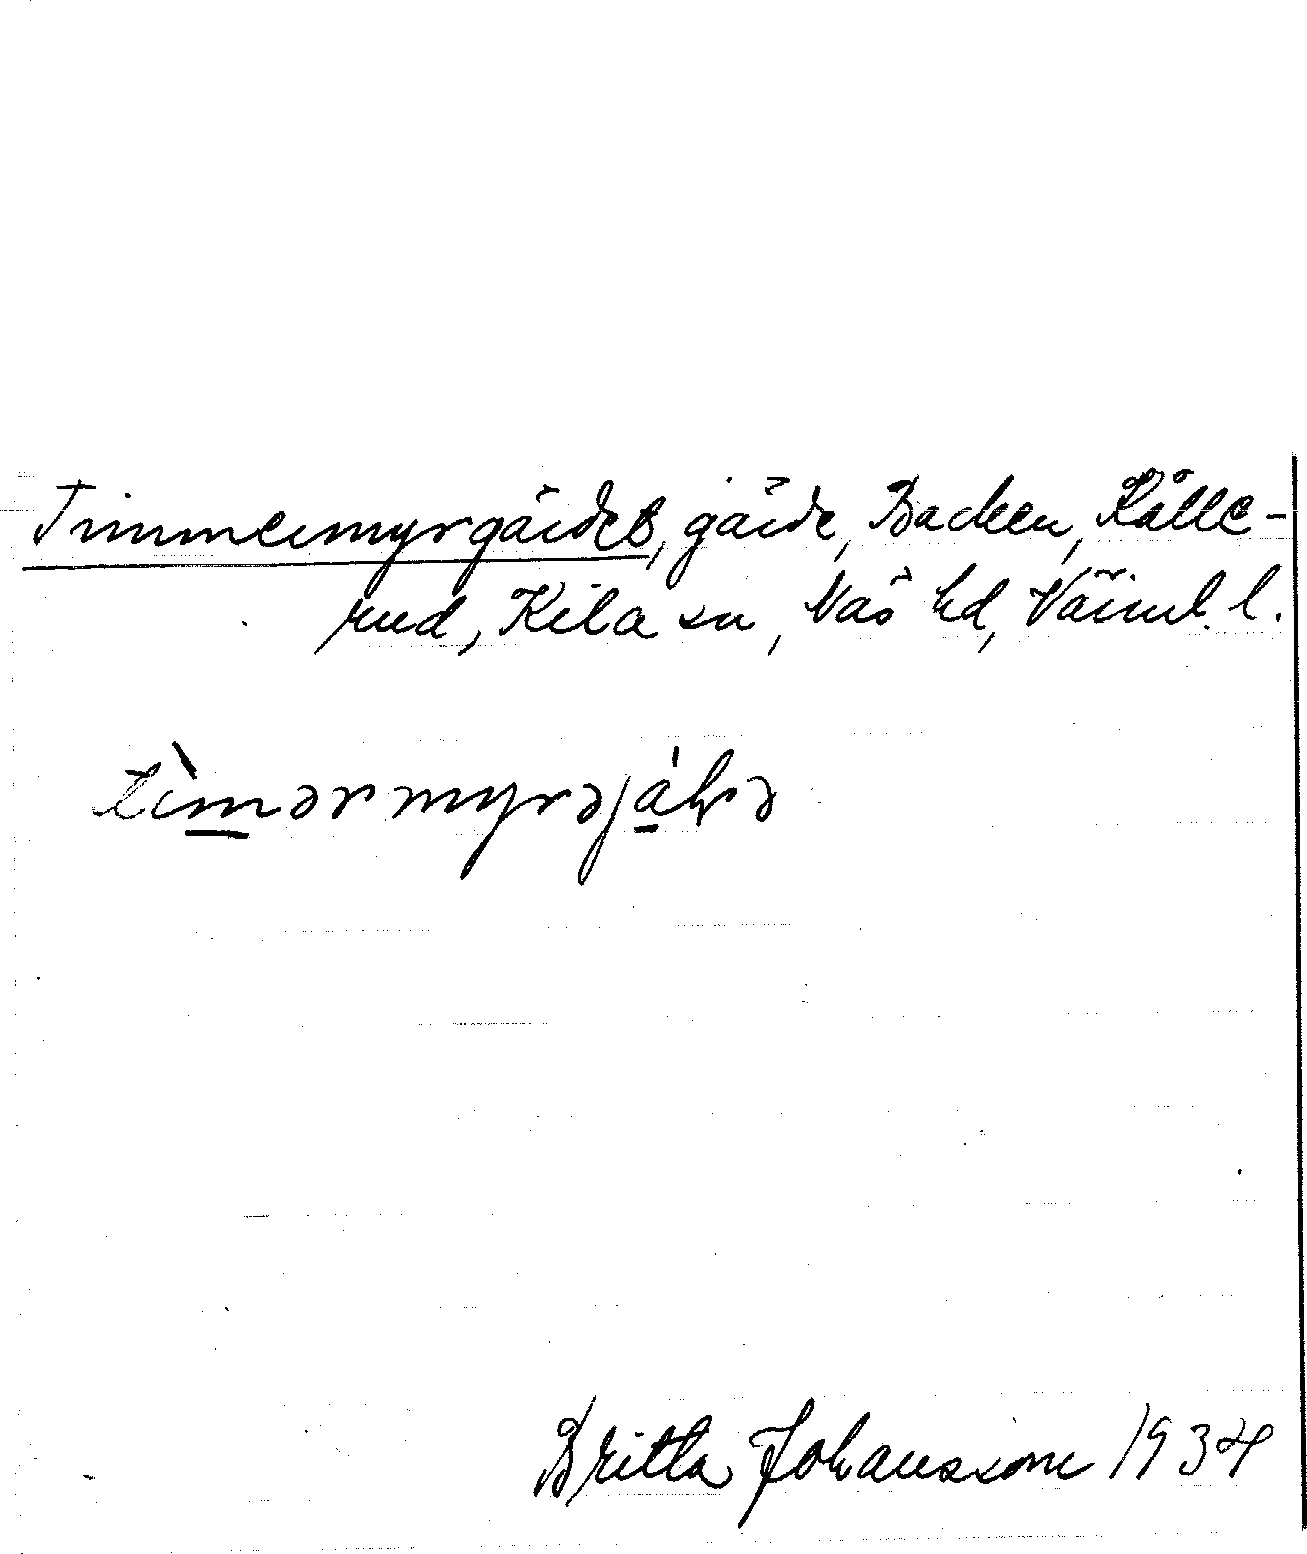 Timmermyrgärdet, gärde, Backen, Kålle-
rud, Kila sn, Näs hd, Värml. l.
tìmərmyrəjáḷə
Britta Johansson 1934